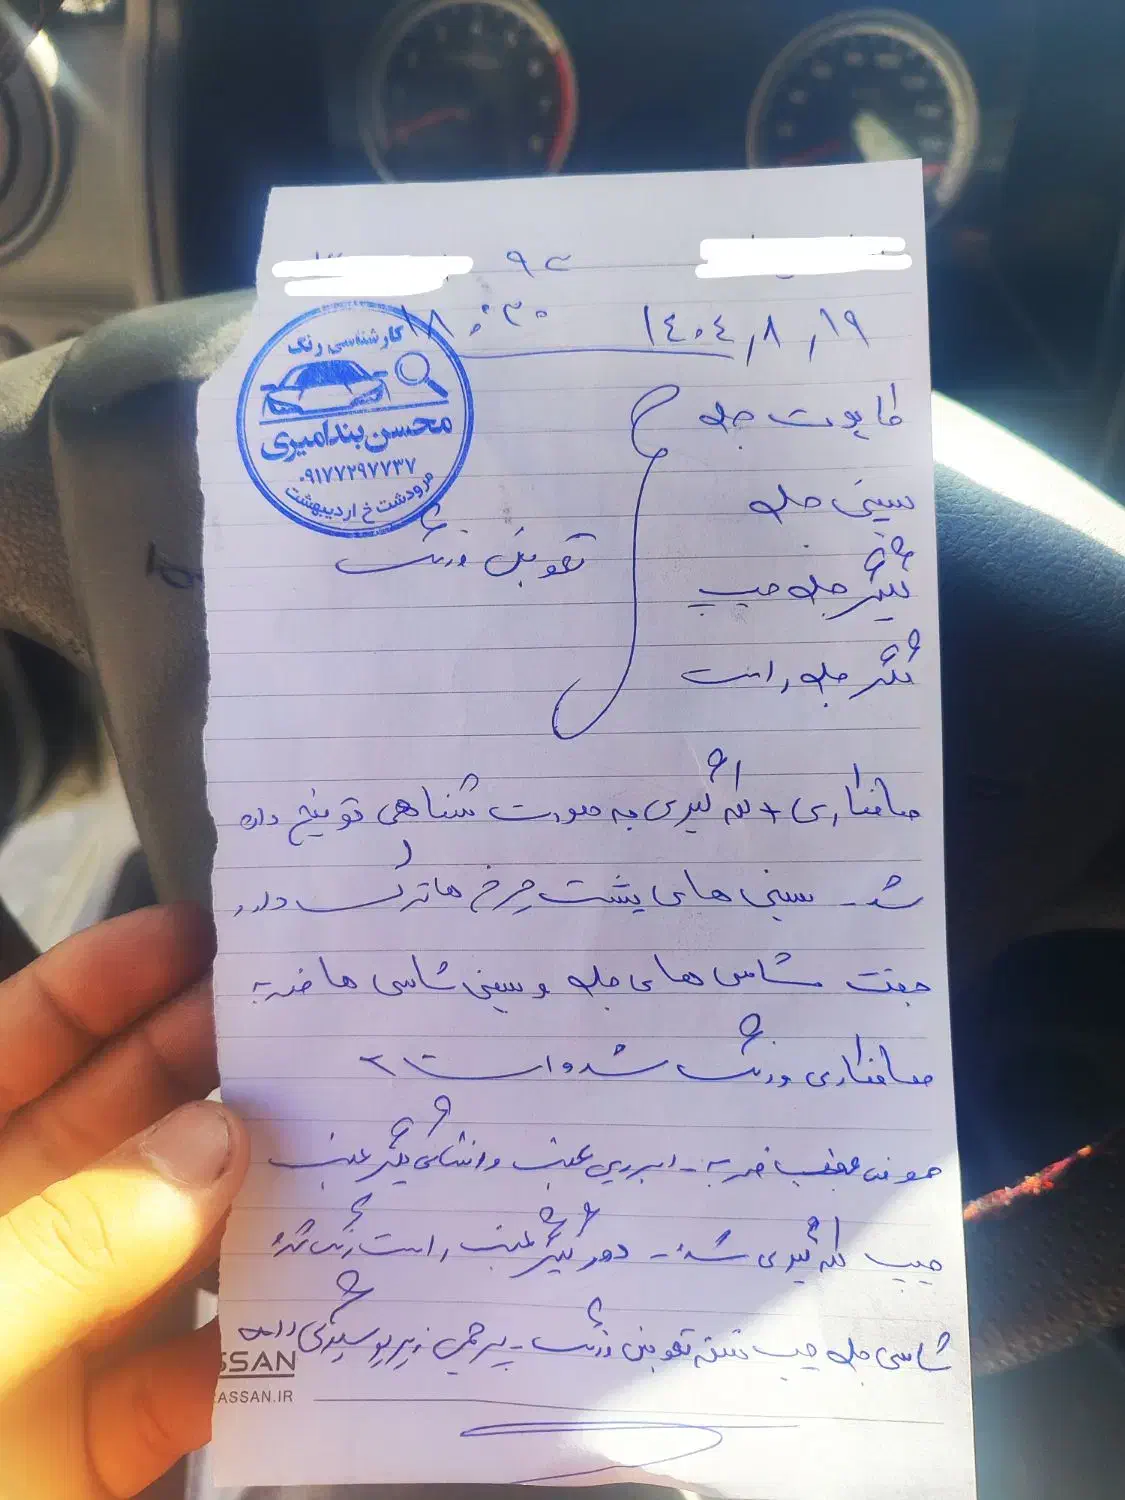 ۹۴
۱۸:۳۰ ۱۴۰۴/۸/۱۹
کارشناسی رنگ
محسن بندامیری
۰۹۱۷۷۲۹۷۷۳۷
مرودشت خ اردیبهشت
کاپوت جلو
سینی جلو
گلگیر جلو چپ
گلگیر جلو راست
تعویض و رنگ
صافکاری + لکه گیری به صورت شفاهی توضیح داده
شد - سینی های پشت چرخ ها ترک دارد
جفت شاسی های جلو و سینی شاسی ها ضربه
صافکاری و رنگ شده است
صندوق عقب ضربه - ابرویی عقب و انتهای گلگیر عقب
چپ لکه گیری شده - دور گلگیر عقب راست رنگ شده
شاسی جلو چپ تعویض و رنگ - پرچمی زیر پوسیدگی دارد
SSAN
ASSAN.IR